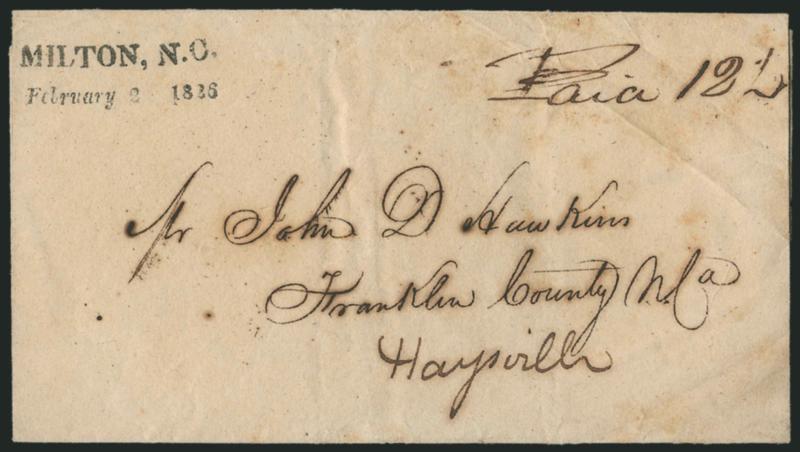 MILTON, N.C.
February 2 1826
Paid 12½
Mr John D Hawkins
Franklin County N. Ca
Haysville